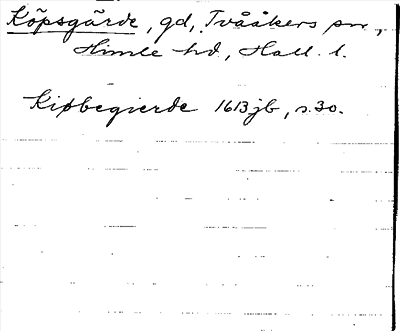 Köpsgärde, gd, Tvååkers sn,
Himle hd, Hall. l.
Kiøbegierde 1613 jb, s. 30.